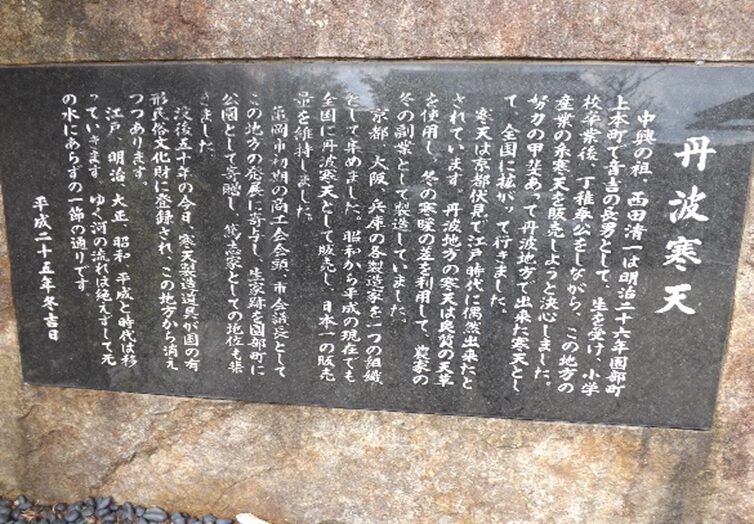 丹波寒天
中興の祖、西田清一は明治二十六年園部町
上本町で音吉の長男として、生を受け、小学
校卒業後、丁稚奉公をしながら、この地方の
産業の糸寒天を販売しようと決心しました。
努力の甲斐あって丹波地方で出来た寒天とし
て、全国に拡がって行きました。
寒天は京都伏見で江戸時代に偶然出来たと
されています。丹波地方の寒天は良質の天草
を使用し、冬の寒暖の差を利用して、農家の
冬の副業として製造していました。
京都、大阪、兵庫の各製造家を一つの組織
をして集めました。昭和から平成の現在でも
全国に丹波寒天として販売し、日本一の販売
量を維持しました。
亀岡市初期の商工会会頭、市会議長として
この地方の発展に寄与し、生家跡を園部町に
公園として寄贈し、篤志家としての地位も築
きました。
没後五十年の今日、寒天製造道具が国の有
形民俗文化財に登録され、この地方から消え
つつあります。
江戸、明治、大正、昭和、平成と時代は移
っていきます。ゆく河の流れは絶えずして元
の水にあらずの一節の通りです。
平成二十五年冬吉日